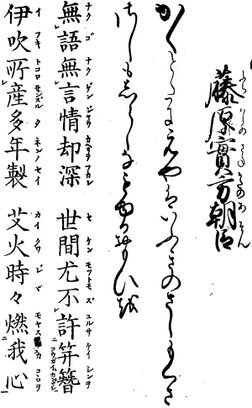 藤原實方朝臣
かくとたにえやはいふきのさしもくさ
さしもしらしなもゆるおもひを
無語無言情却深　世間尤不許笄簪
伊吹所産多年製　艾火時々燃我心